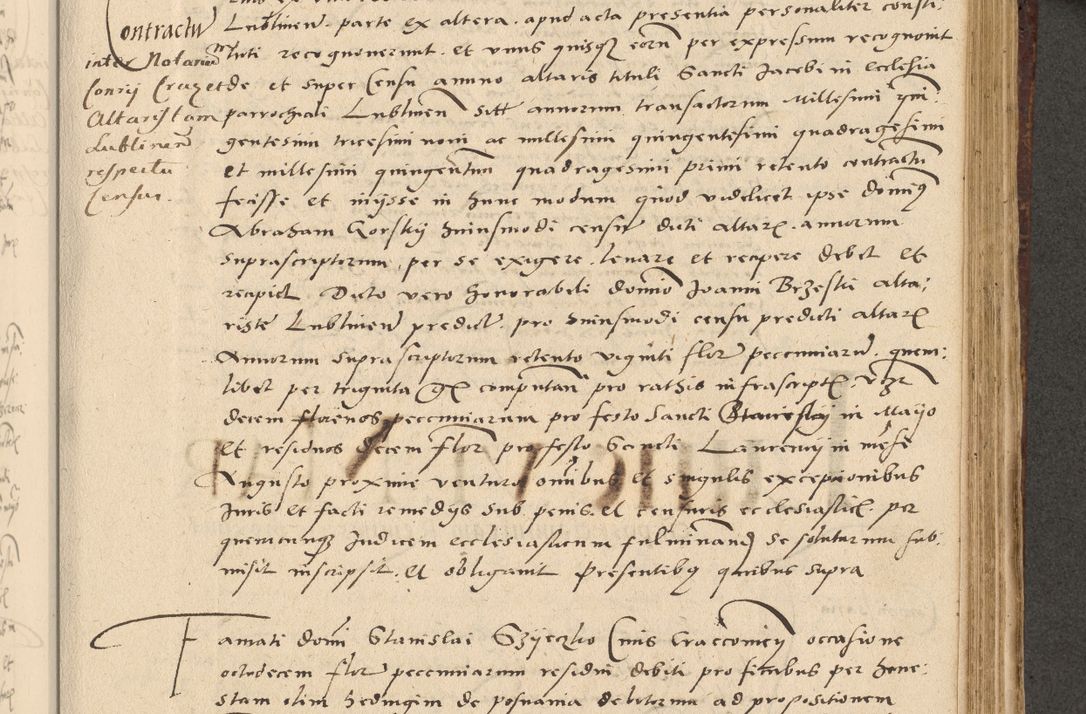 Contractus
inter Notarium
Consrii Craco et
Altaristam
Lublinen
respectu
Census.
Lublinen parte ex altera. apud acta presentia personaliter consti:
tuti recognoverunt. et unus quisque eorum per expressum recognovit
de et super Censu annuo altaris tituli Sancti Jacobi in ecclesia
parrochiali Lublinen Sitt annorum transactorum Millesimi quin
gentesimi tricesimi noni ac millesimi quingentesimi quadragesimi
et millesimi quingentesimi quadragesimi primi retento contractum
fecisse et inijsse in hunc modum quod videlicet ipse dominus
Abraham Gorsky huiusmodi censum dicti altaris. annorum
suprascriptorum, per se exigere. levare et recipere debet et
recipiet. Dicto vero honorabili domino Joanni Brzeski alta:
riste Lublinen predict. pro huiusmodi censu predicti altaris
Annorum suprascriptorum retento viginti flor pecuniarum. quem:
libet per triginta gr computan pro rathis infrascriptis. videlicet
decem florenos pecuniarum pro festo Sancti Stanislai in Maijo
et residuos decem flor pro festo Sancti Laurencij in mense
Augusto proxime venturo omnibus et singulis excepcionibus
Juris et facti remedijs sub penis. et censuris ecclesiasticis. per
quemcunque Judicem ecclesiasticum fulminand se soluturum sub:
misit inscripsit. et obligavit Presentibus quibus supra
Famati domini Stanislai Czijeczko Civis Cracoviensis occasione
octodecem flor pecuniarum residui debiti pro ficubus per hone:
stam olim Hedvigim de posnania debitorum ad propositionem